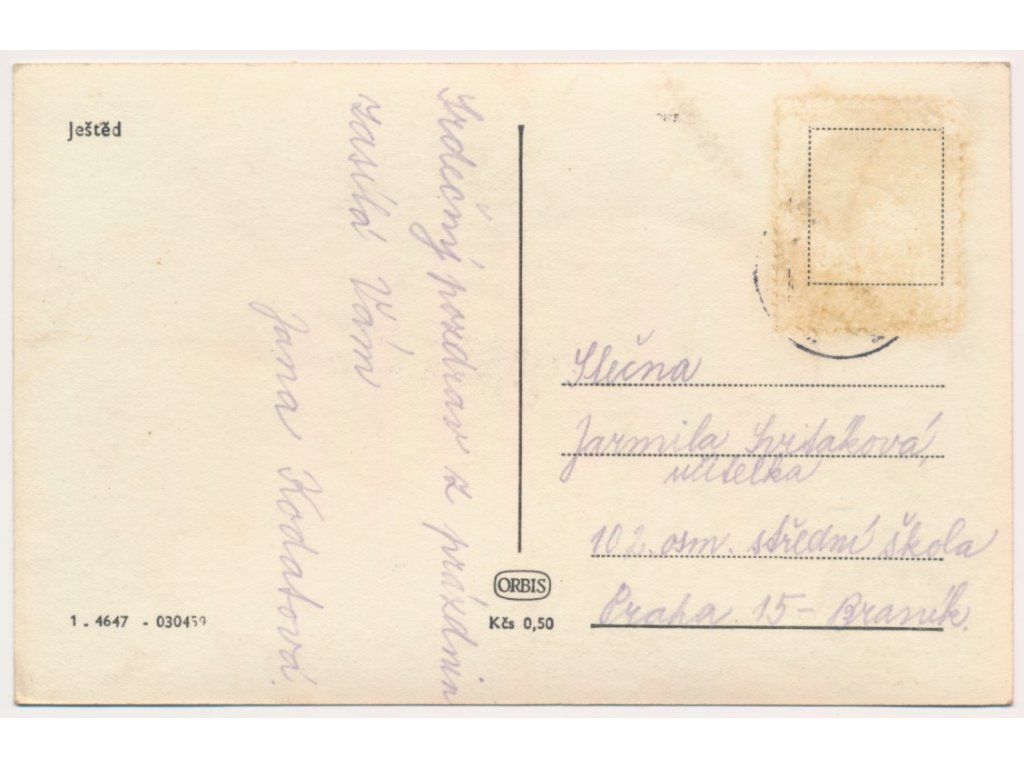 Ještěd
Srdečný pozdrav z prázdnin
zasílá Vám
Jana Kodatová.
Slečna
Jarmila Svitáková,
učitelka
102. osm. střední škola
Praha 15 - Braník.
1 - 4647 - 030459
ORBIS
Kčs 0,50